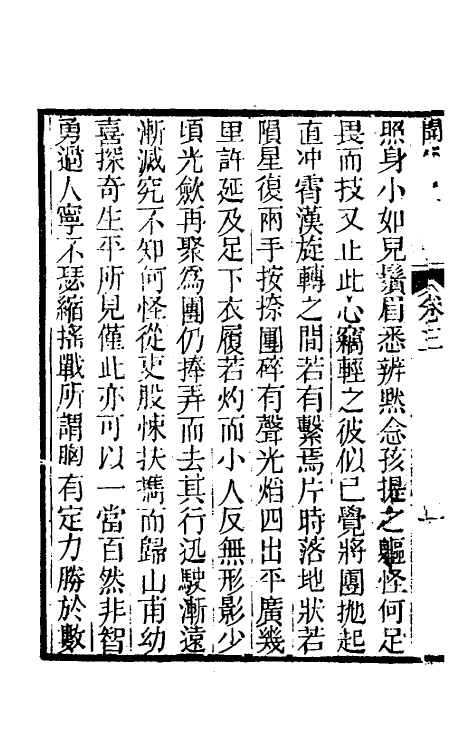 聞
卷三
照身小如兒鬚眉悉辨黙念孩提之軀怪何足
畏而技又止此心竊輕之彼似已覺將團抛起
直冲霄漢旋轉之間若有繫焉片時落地狀若
隕星復兩手按捺團碎有聲光熖四出平廣幾
里許延及足下衣履若灼而小人反無形影少
頃光斂再聚爲團仍捧弄而去其行迅駛漸遠
漸滅究不知何怪從吏股悚扶擕而歸山甫幼
喜探奇生平所見僅此亦可以一當百然非智
勇過人寧不瑟縮搖戰所謂胸有定力勝於數